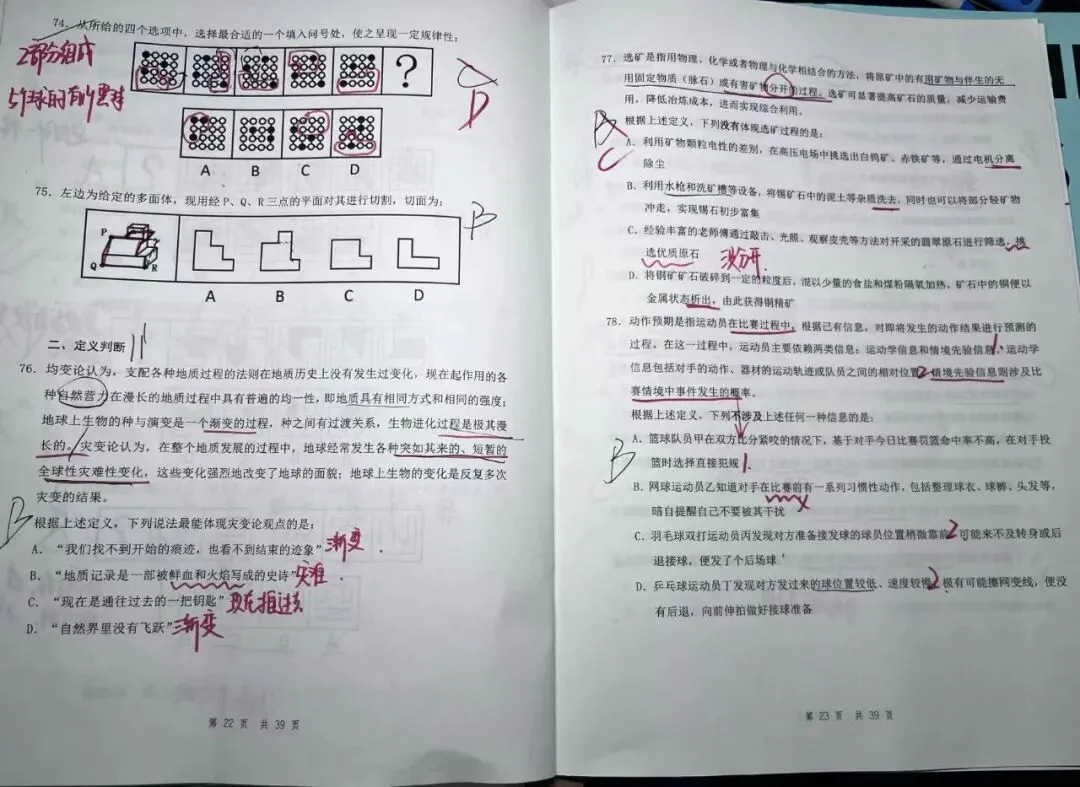 74. 从所给的四个选项中，选择最合适的一个填入问号处，使之呈现一定规律性：
2部分组成
?
D
A B C D
75. 左边为给定的多面体，现用经P、Q、R三点的平面对其进行切割，切面为：
B
P
Q R
A B C D
二、定义判断
76. 均变论认为，支配各种地质过程的法则在地质历史上没有发生过变化，现在起作用的各
种自然营力在漫长的地质过程中具有普遍的均一性，即地质具有相同方式和相同的强度；
地球上生物的种与演变是一个渐变的过程，种之间有过渡关系，生物进化过程是极其漫
长的。灾变论认为，在整个地质发展的过程中，地球经常发生各种突如其来的、短暂的
全球性灾难性变化，这些变化强烈地改变了地球的面貌；地球上生物的变化是反复多次
灾变的结果。
B
根据上述定义，下列说法最能体现灾变论观点的是：
A. “我们找不到开始的痕迹，也看不到结束的迹象” 渐变
B. “地质记录是一部被鲜血和火焰写成的史诗” 灾难
C. “现在是通往过去的一把钥匙” 现在推过去
D. “自然界里没有飞跃” 渐变
第 22 页 共 39 页
77. 选矿是指用物理、化学或者物理与化学相结合的方法，将原矿中的有用矿物与伴生的无
用固定物质（脉石）或有害矿物分开的过程。选矿可显著提高矿石的质量，减少运输费
用，降低冶炼成本，进而实现综合利用。
根据上述定义，下列没有体现选矿过程的是：
C
A. 利用矿物颗粒电性的差别，在高压电场中挑选出白钨矿、赤铁矿等，通过电机分离
除尘
B. 利用水枪和洗矿槽等设备，将锡矿石中的泥土等杂质洗去，同时也可以将部分轻矿物
冲走，实现锡石初步富集
C. 经验丰富的老师傅通过敲击、光照、观察皮壳等方法对开采的翡翠原石进行筛选，挑
选优质原石 没分开
D. 将铜矿矿石破碎到一定的粒度后，混以少量的食盐和煤粉隔氧加热，矿石中的铜便以
金属状态析出，由此获得铜精矿
78. 动作预期是指运动员在比赛过程中，根据已有信息，对即将发生的动作结果进行预测的
过程。在这一过程中，运动员主要依赖两类信息：运动学信息和情境先验信息。运动学
信息包括对手的动作、器材的运动轨迹或队员之间的相对位置，情境先验信息则涉及比
赛情境中事件发生的概率。
根据上述定义，下列不涉及上述任何一种信息的是：
B
A. 篮球队员甲在双方比分紧咬的情况下，基于对手今日比赛罚篮命中率不高，在对手投
篮时选择直接犯规 1
B. 网球运动员乙知道对手在比赛前有一系列习惯性动作，包括整理球衣、球裤、头发等，
暗自提醒自己不要被其干扰
C. 羽毛球双打运动员丙发现对方准备接发球的球员位置稍微靠前，可能来不及转身或后
退接球，便发了个后场球
D. 乒乓球运动员丁发现对方发过来的球位置较低、速度较慢，极有可能擦网变线，便没
有后退，向前伸拍做好接球准备
第 23 页 共 39 页